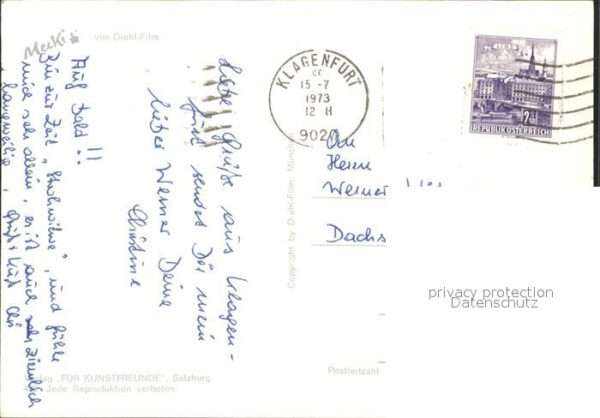 Mecki
von Diehl-Film
Liebe Grüße aus Klagen-
furt sendet Dir mein
lieber Werner Deine
Christine
Auf bald !!
Bin zur Zeit „Strohwitwe", und fühle
mich sehr allein, es ist auch sehr ziemlich
langweilig. Gruß + Kuß Chr
KLAGENFURT
15-7
1973
12 H
9020
2S
REPUBLIK ÖSTERREICH
An
Herrn
Werner
Dachs
Copyright by Diehl-Film, München
privacy protection
Datenschutz
Postleitzahl
"FÜR KUNSTFREUNDE", Salzburg.
Jede Reproduktion verboten.